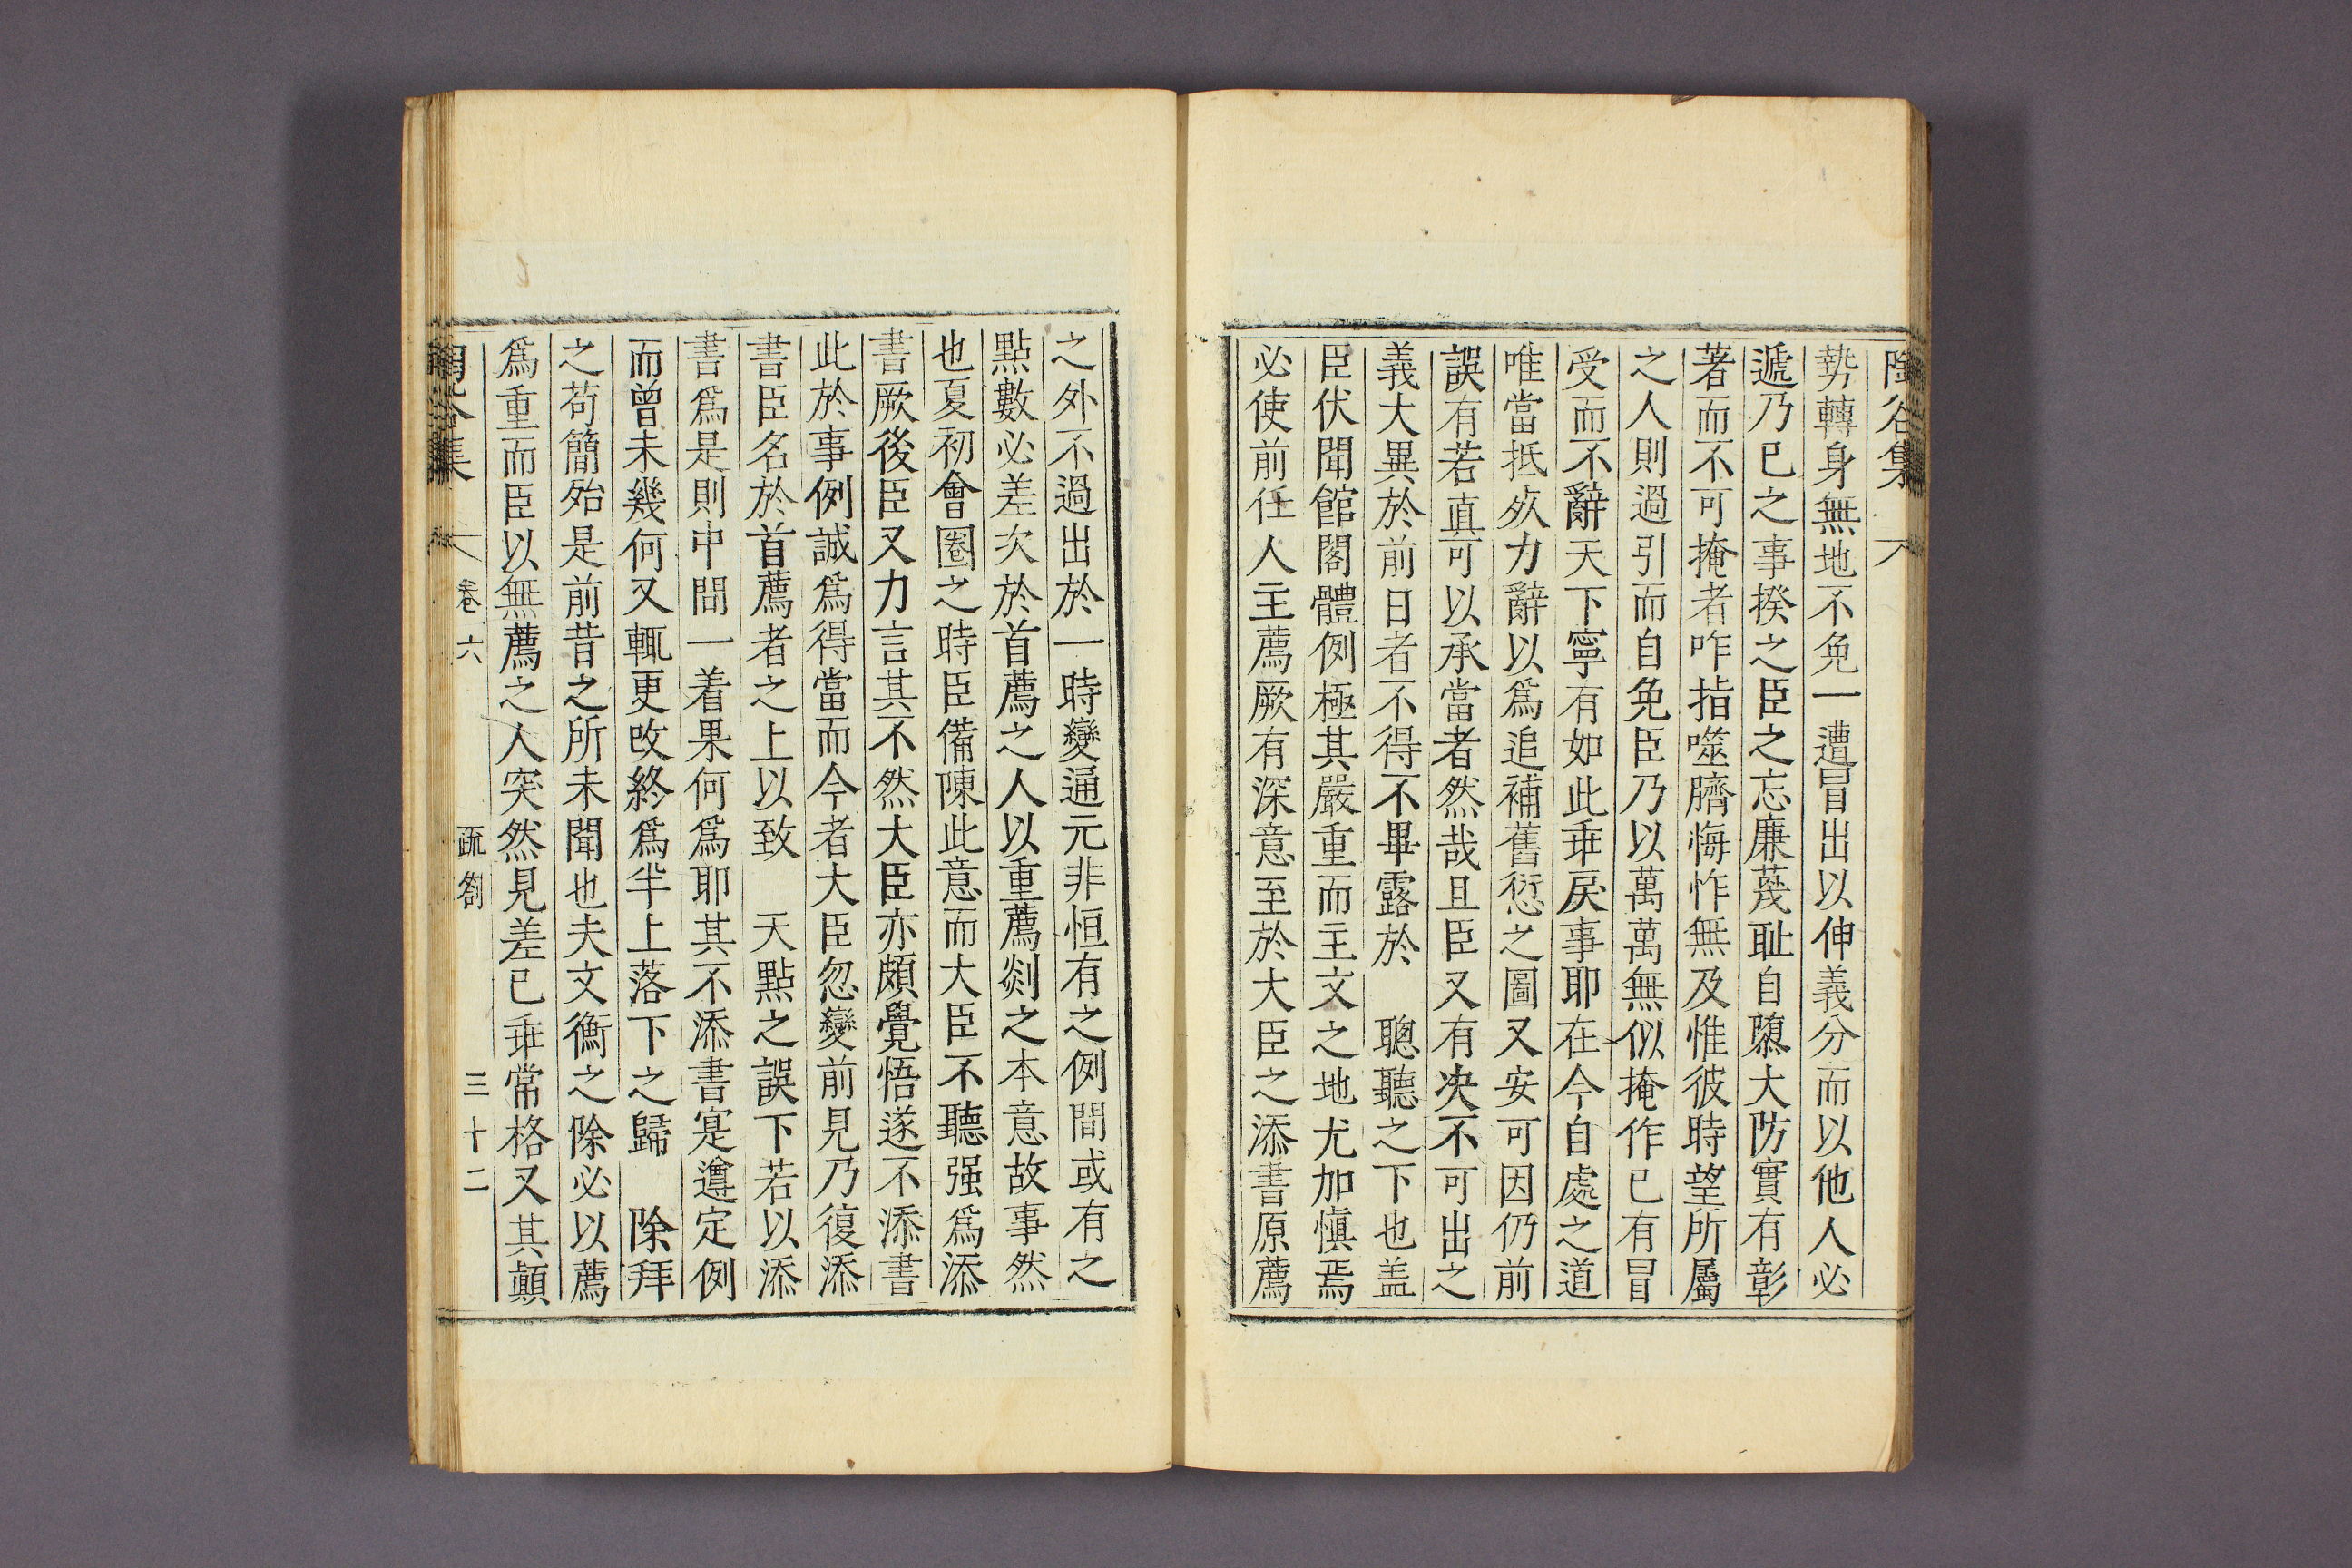 陶谷集
勢轉身無地不免一遭冒出以伸義分而以他人必
遞乃已之事揆之臣之忘廉蔑耻自隳大防實有彰
著而不可掩者咋指噬臍悔怍無及惟彼時望所屬
之人則過引而自免臣乃以萬萬無似掩作已有冒
受而不辭天下寧有如此乖戾事耶在今自處之道
唯當抵死力辭以爲追補舊愆之圖又安可因仍前
誤有若眞可以承當者然哉且臣又有决不可出之
義大異於前日者不得不畢露於　聰聽之下也盖
臣伏聞館閣體例極其嚴重而主文之地尤加愼焉
必使前任人主薦厥有深意至於大臣之添書原薦
之外不過出於一時變通元非恒有之例間或有之
點數必差次於首薦之人以重薦剡之本意故事然
也夏初會圈之時臣備陳此意而大臣不聽强爲添
書厥後臣又力言其不然大臣亦頗覺悟遂不添書
此於事例誠爲得當而今者大臣忽變前見乃復添
書臣名於首薦者之上以致　天點之誤下若以添
書爲是則中間一着果何爲耶其不添書寔遵定例
而曾未幾何又輒更改終爲半上落下之歸　除拜
之苟簡殆是前昔之所未聞也夫文衡之除必以薦
爲重而臣以無薦之人突然見差已乖常格又其顚
陶谷集　卷六　疏劄　三十二